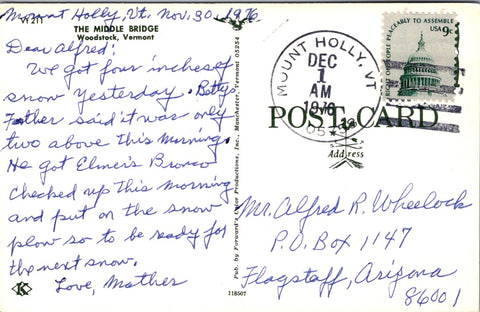 Mount Holly, Vt. Nov. 30, 1976
VT 211
THE MIDDLE BRIDGE
Woodstock, Vermont
Dear Alfred:
We got four inches of
snow yesterday. Betty's
Father said it was only
two above this morning.
He got Elmer's Bronco
checked up this morning
and put on the snow
plow so to be ready for
the next snow.
Love, Mother
K
Pub. by Forward's Color Productions, Inc., Manchester, Vermont 05254
118507
MOUNT HOLLY, VT
DEC
1
AM
1976
RIGHT OF PEOPLE PEACEABLY TO ASSEMBLE
USA 9c
POST CARD
Address
Mr. Alfred R. Wheelock
P.O. Box 1147
Flagstaff, Arizona
86001